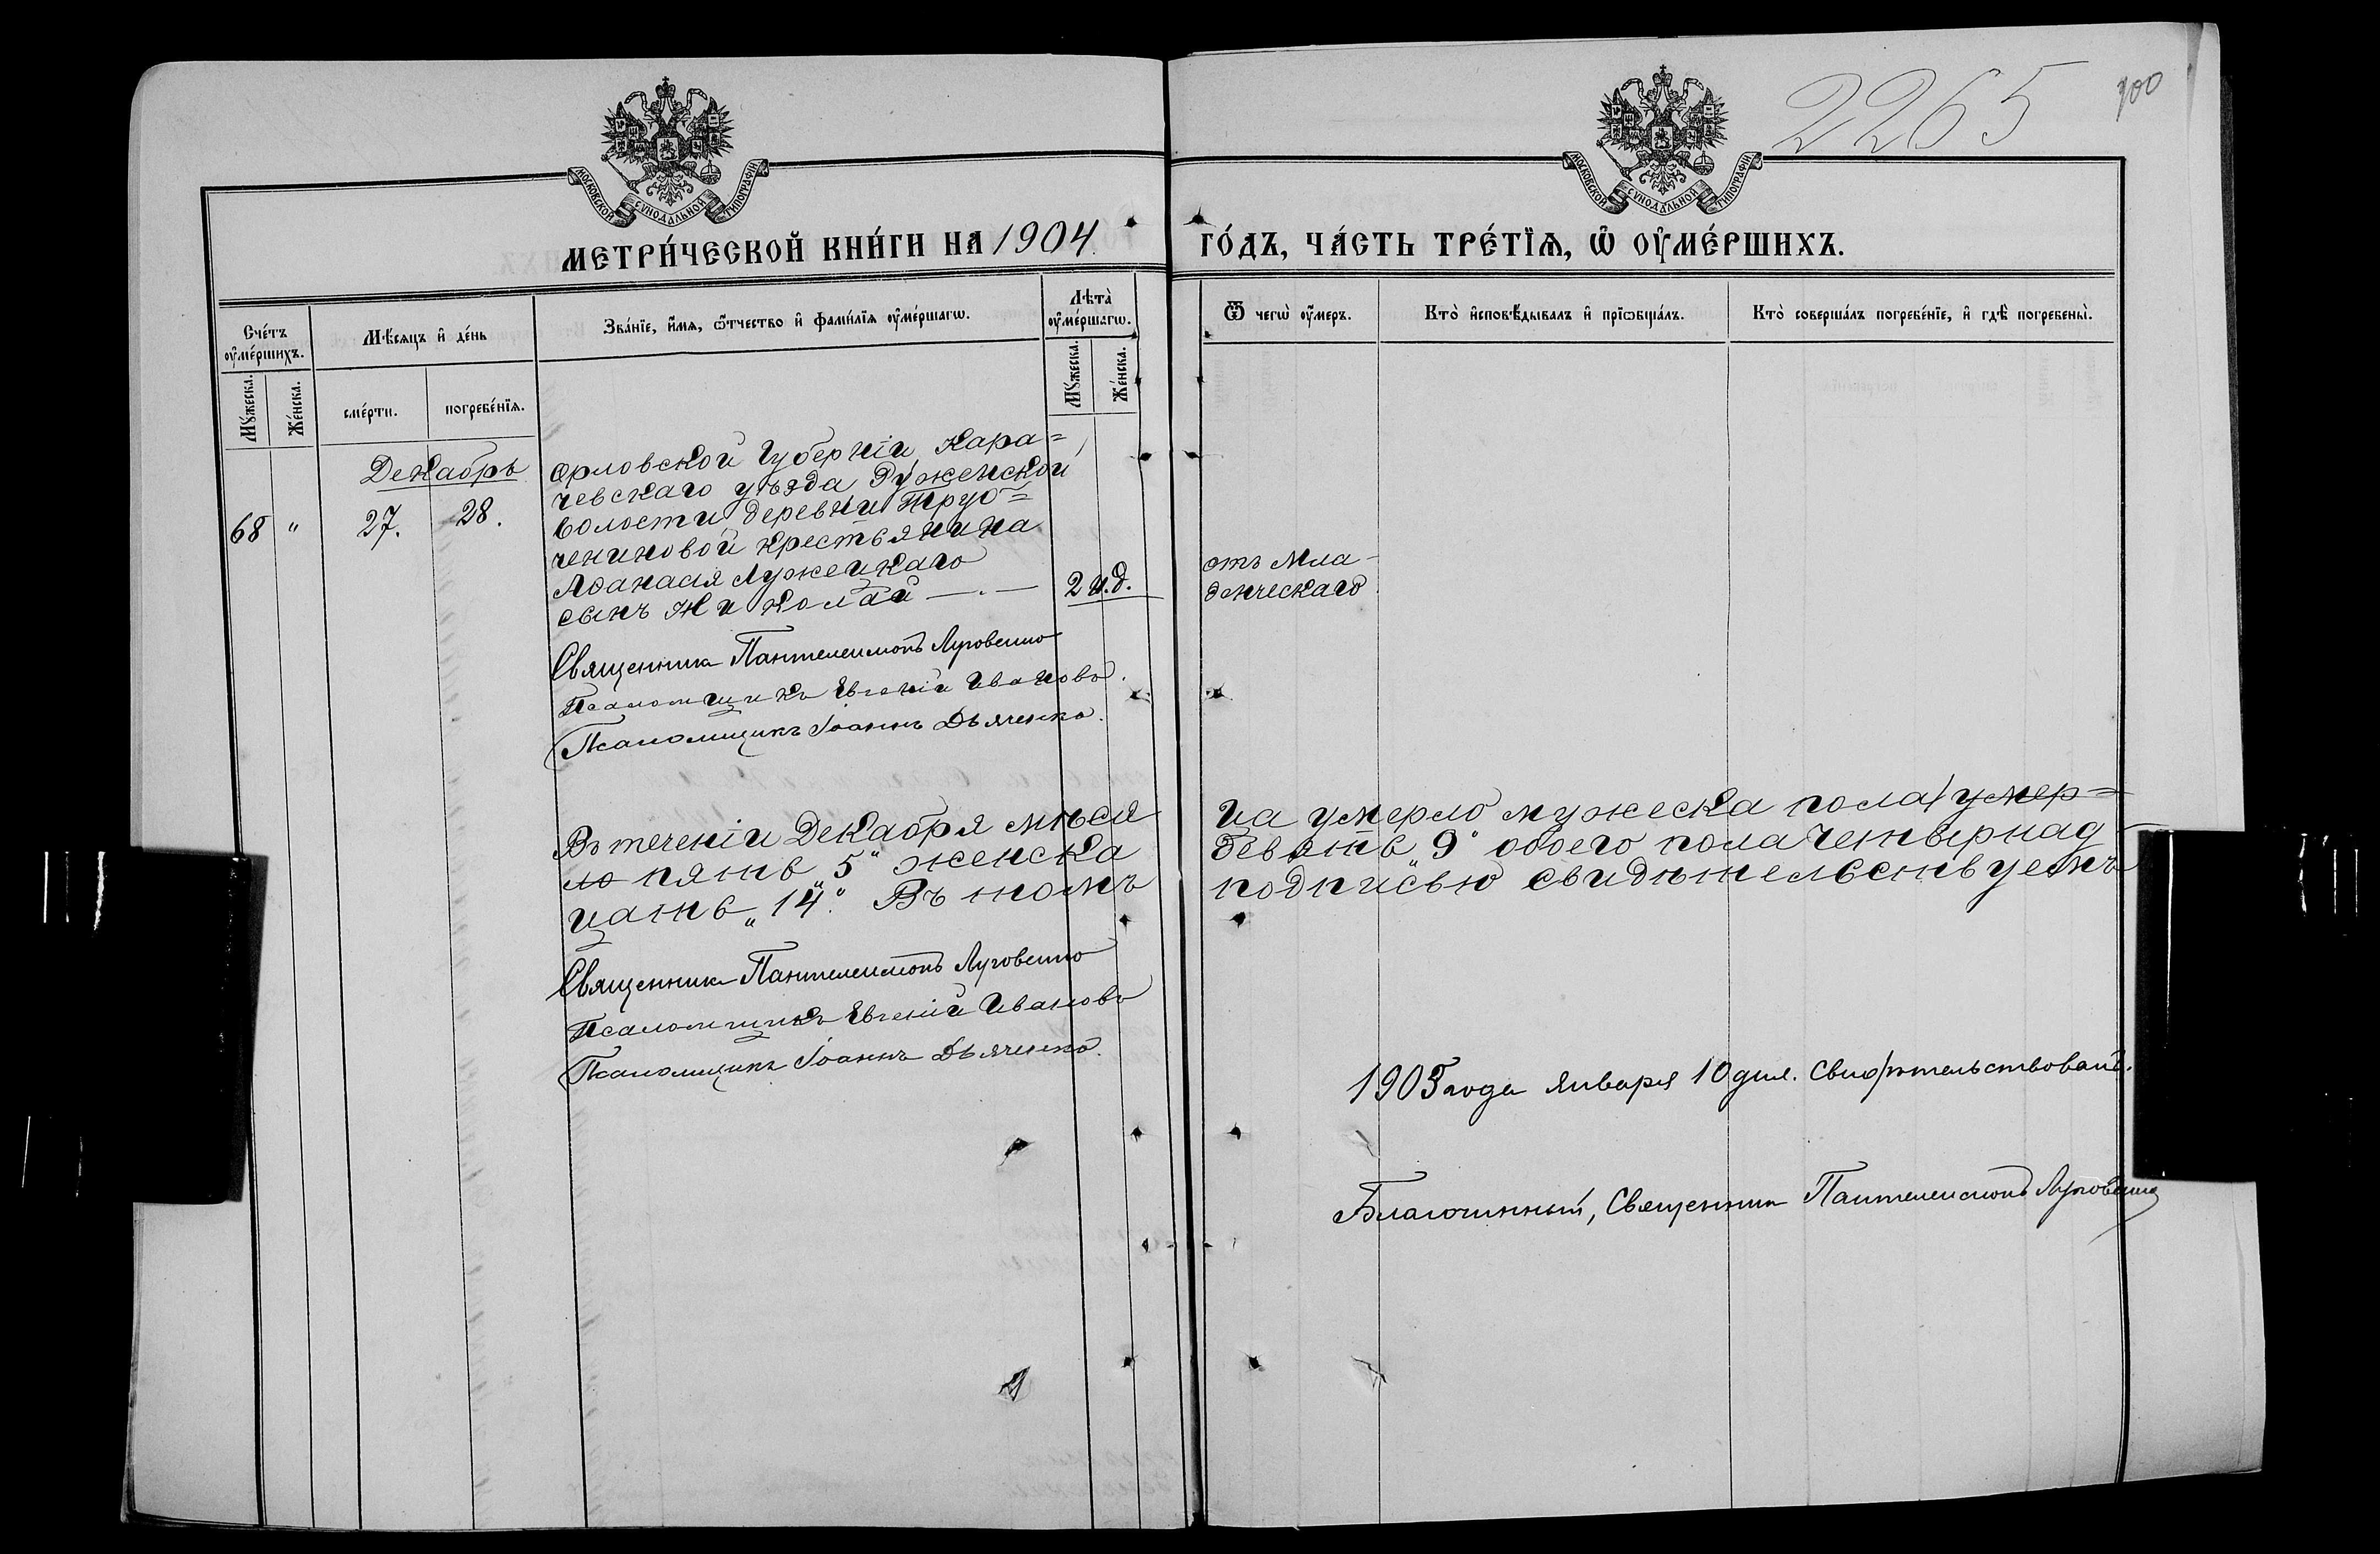 2265
700
МОСКОВСКОЙ СѴНОДАЛЬНОЙ ТИПОГРАФІИ
МОСКОВСКОЙ СѴНОДАЛЬНОЙ ТИПОГРАФІИ
МЕТРИ́ЧЕСКОЙ КНИ́ГИ НА 1904.
ГО́ДЪ, ЧА́СТЬ ТРЕ́ТІѦ, Ѡ҆ ОУ҆МЕ́РШИХЪ.
Сче́тъ оу҆ме́ршихъ.
Мꙋ́жеска.
Же́нска.
Мѣ́сяцъ и҆ де́нь
сме́рти.
погребе́нїѧ.
Зва́нїе, и҆́мѧ, ѻ҆́тчество и҆ фами́лїѧ оу҆ме́ршагѡ.
Лѣ́та оу҆ме́ршагѡ.
Мꙋ́жеска.
Же́нска.
Ѿ чегѡ̀ оу҆́меръ.
Кто̀ и҆сповѣ́дывалъ и҆ прїѡбща́лъ.
Кто̀ соверша́лъ погребе́нїе, и҆ гдѣ̀ погребены̀.
Декабрь
68 " 27. 28.
Орловской Губерніи, Кара=
чевскаго уѣзда Руженской
волости, деревни Труб=
чениновой крестьянина
Аѳанасія Лужецкаго
сынъ Николай —.—
2 н.д.
отъ Мла-
денческаго.
Священникъ Пантелеимонъ Луговенко
Псаломщикъ Евгеній Ивановъ.
Псаломщикъ Іоаннъ Дьяченко.
Въ теченіи Декабря мѣся
ца умерло мужеска пола умер=
ло пять „5" женска
девять „9" обоего пола четырнад
цать „14". Въ томъ
подписью свидѣтельствуемъ
Священникъ Пантелеимонъ Луговенко
Псаломщикъ Евгеній Ивановъ
Псаломщикъ Іоаннъ Дьяченко.
1905 года января 10 дня. Свидѣтельствовалъ.
Благочинный, Священникъ Пантелеимонъ Луговенко